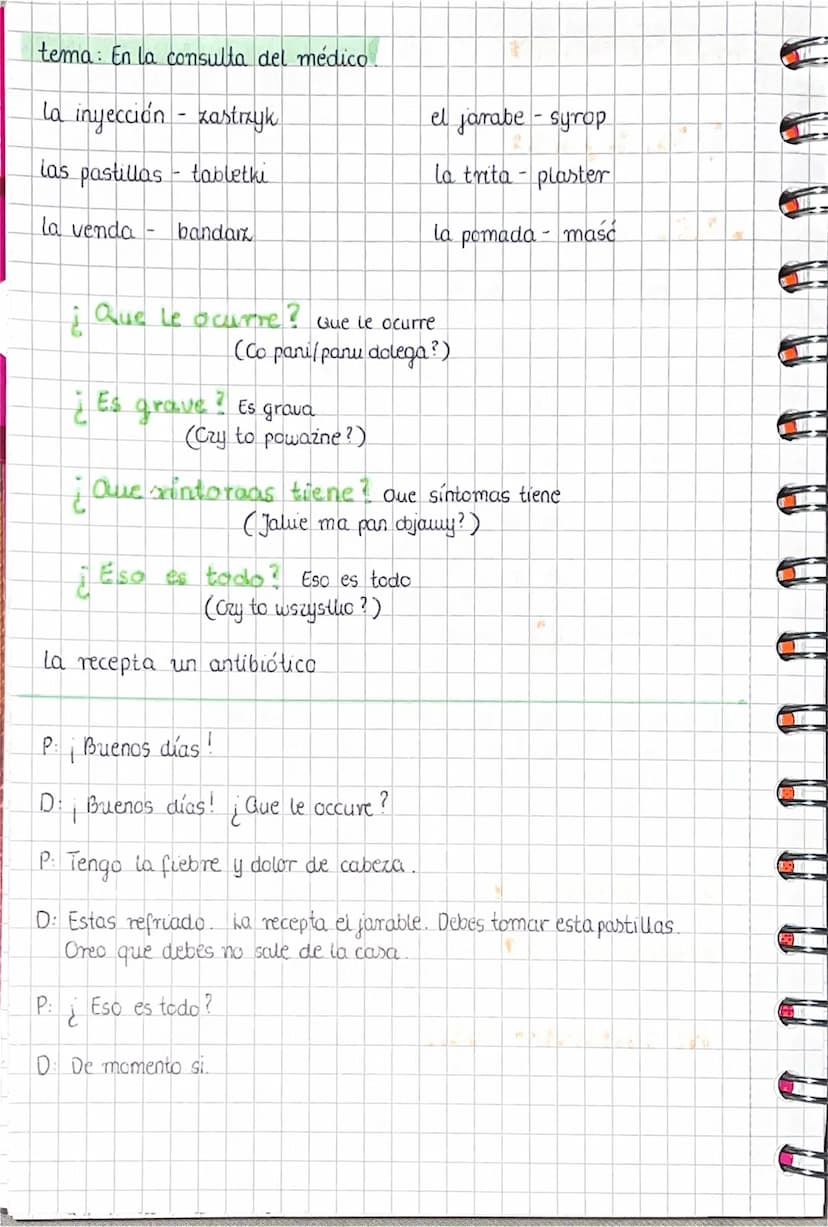 tema: En la consulta del médico.
la inyección - zastrzyk
el jarabe - syrop
las pastillas - tabletki
la trita - plaster
la venda - bandaż
la pomada - maść
¿Que le ocurre? Que le ocurre
(Co pani/panu dolega?)
¿Es grave? Es grava
(Czy to poważne?)
¿Que síntomas tiene? Que síntomas tiene
(Jakie ma pan objawy?)
¿Eso es todo? Eso es todo
(Czy to wszystko?)
la recepta un antibiótico
P: ¡Buenos días!
D: ¡Buenos días! ¿Que le occure?
P: Tengo la fiebre y dolor de cabeza.
D: Estas refriado. La recepta el jarrable. Debes tomar esta pastillas.
Creo que debes no sale de la casa.
P: ¿Eso es todo?
D: De momento si.